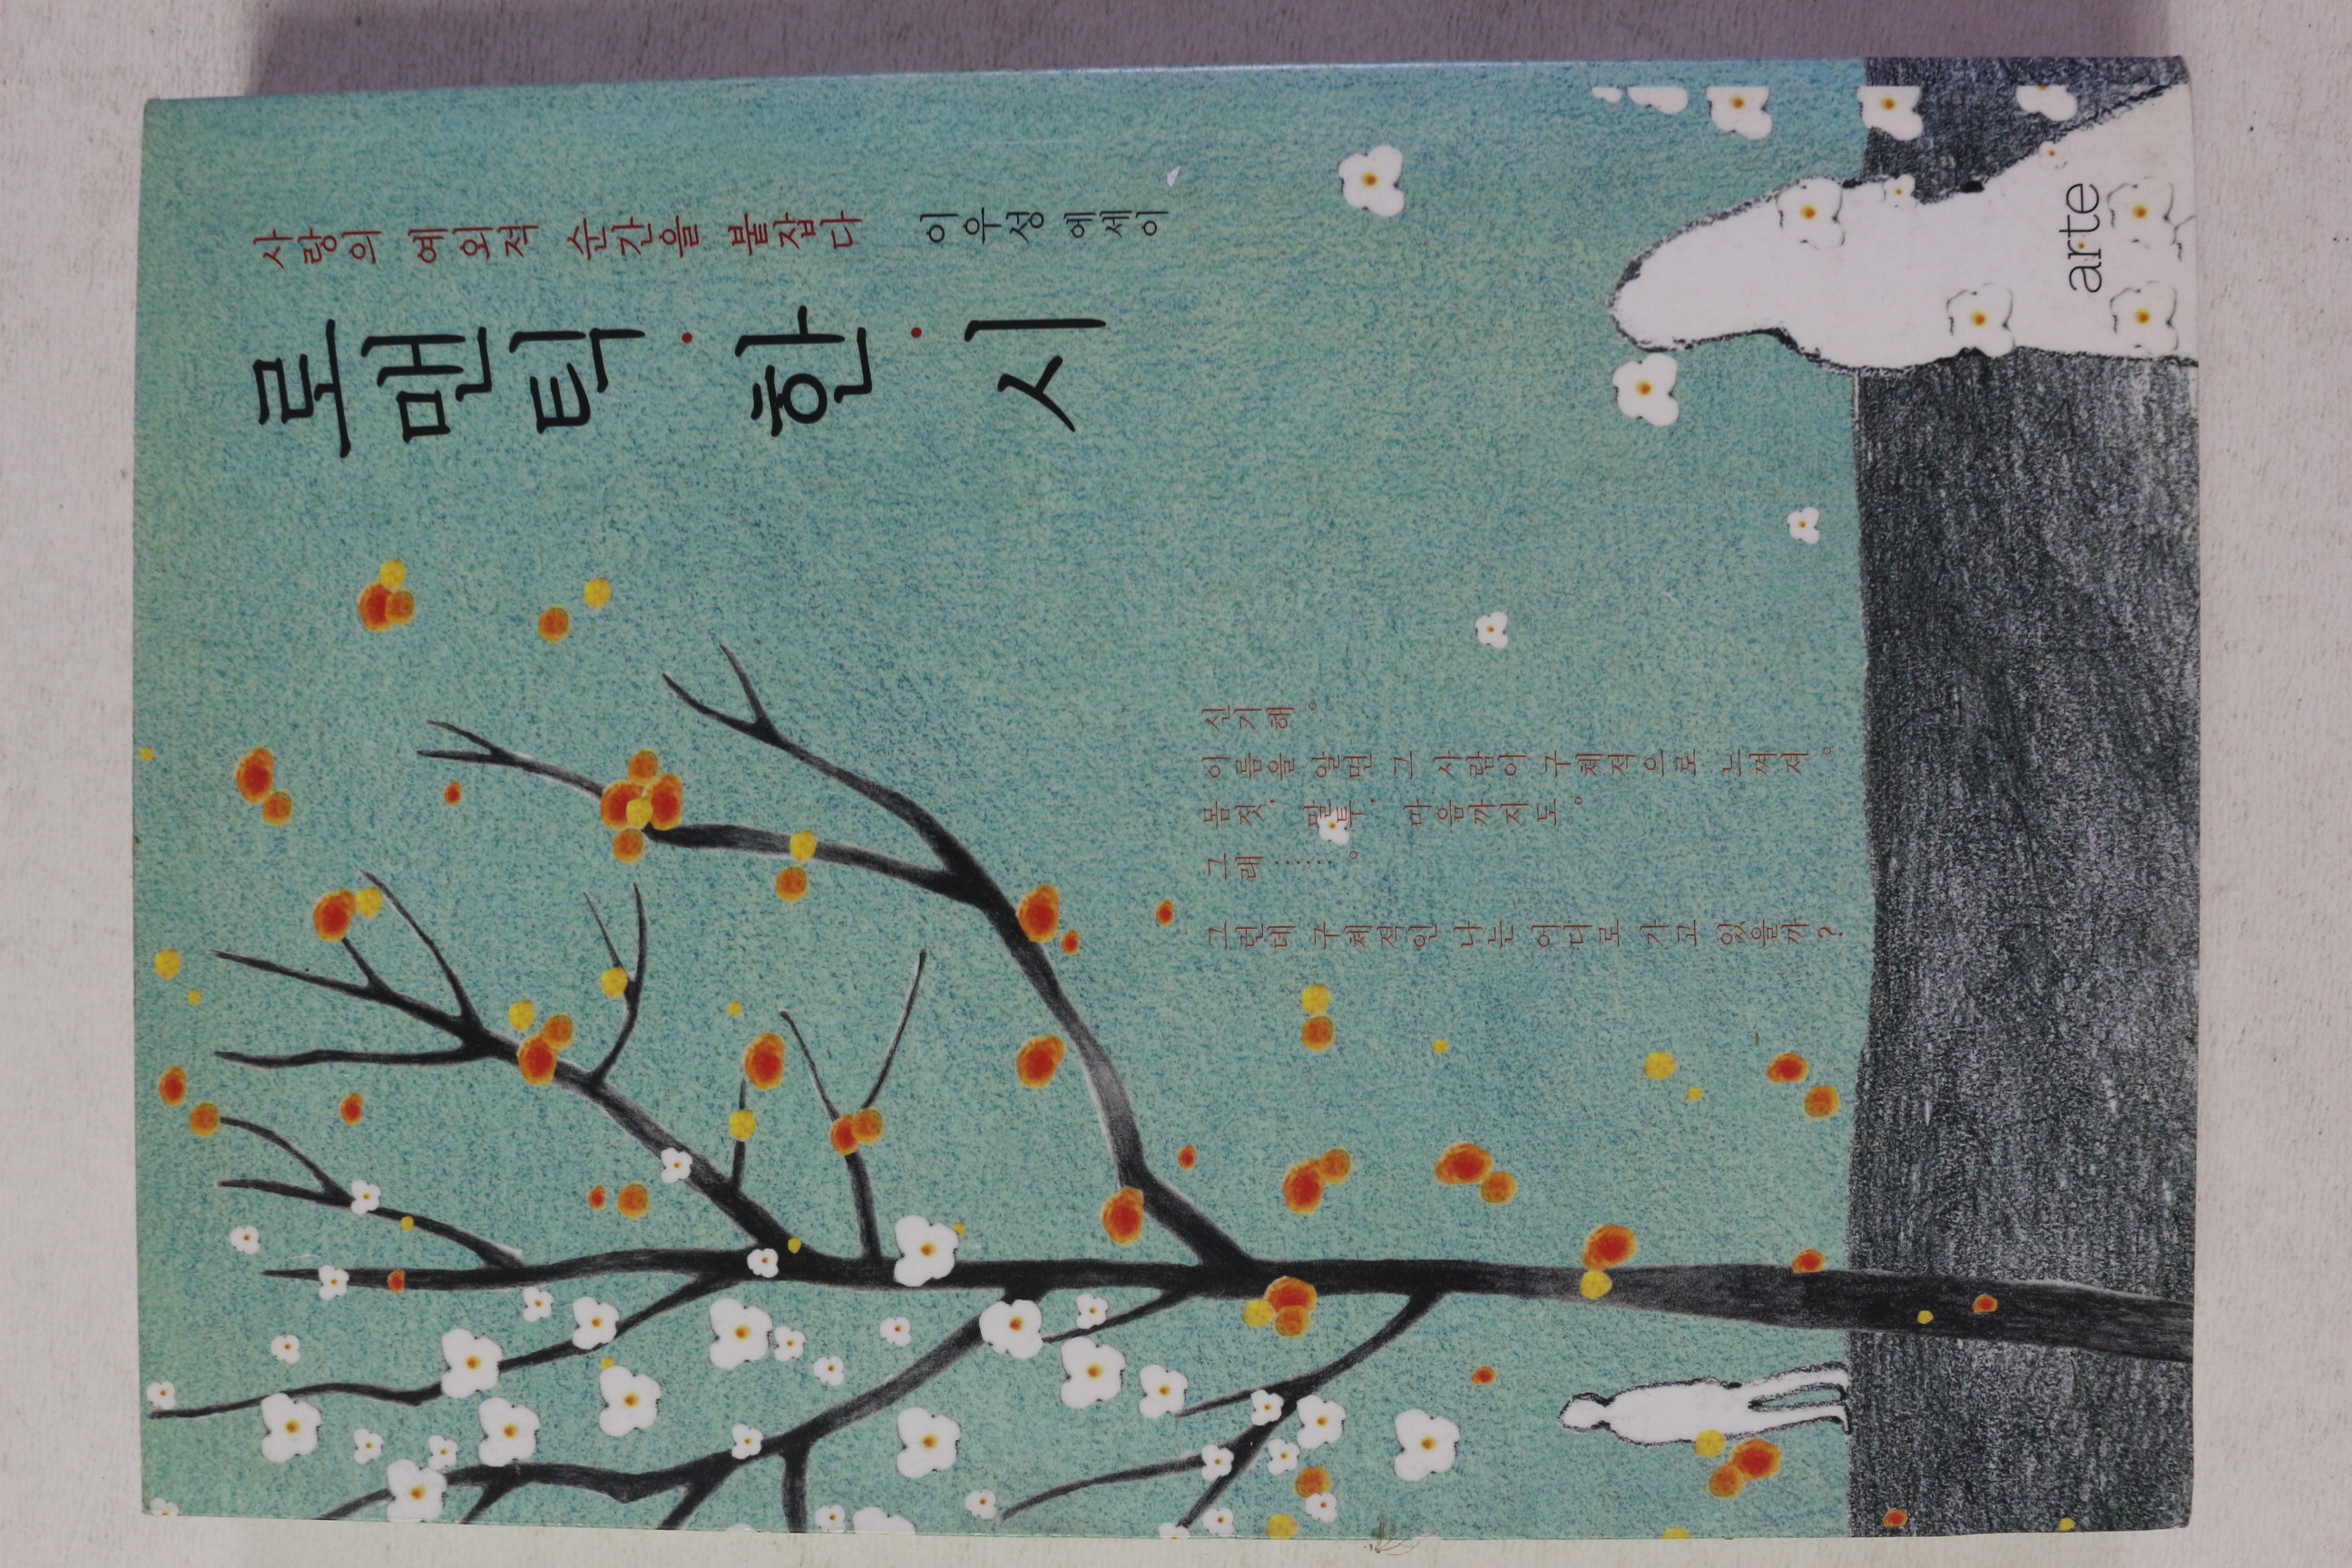 사랑의 예외적 순간을 붙잡다 이우성 에세이
로맨틱·한·시
신기해。
이름을 알면 그 사람이 구체적으로 느껴져。
몸짓, 말투, 마음까지도。
그래……。
그런데 구체적인 나는 어디로 가고 있을까?
arte